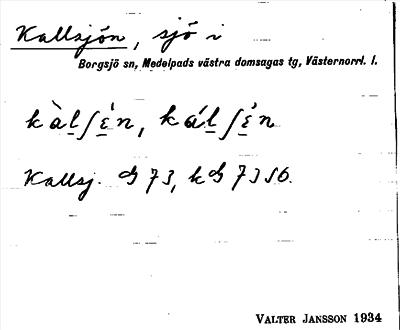 Kallsjön, sjö i
Borgsjö sn, Medelpads västra domsagas tg, Västernorrl. l.
kàlʃèn, kálʃèn
Kallsj. 73, k 73 S6.
VALTER JANSSON 1934